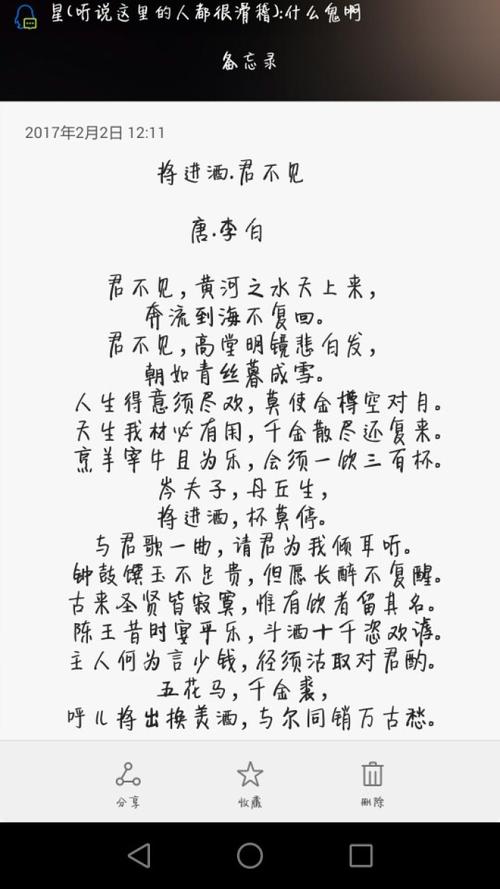 星(听说这里的人都很滑稽):什么鬼啊
备忘录
2017年2月2日 12:11
将进酒.君不见
唐.李白
君不见,黄河之水天上来,
奔流到海不复回。
君不见,高堂明镜悲白发,
朝如青丝暮成雪。
人生得意须尽欢,莫使金樽空对月。
天生我材必有用,千金散尽还复来。
烹羊宰牛且为乐,会须一饮三百杯。
岑夫子,丹丘生,
将进酒,杯莫停。
与君歌一曲,请君为我倾耳听。
钟鼓馔玉不足贵,但愿长醉不复醒。
古来圣贤皆寂寞,惟有饮者留其名。
陈王昔时宴平乐,斗酒十千恣欢谑。
主人何为言少钱,径须沽取对君酌。
五花马,千金裘,
呼儿将出换美酒,与尔同销万古愁。
分享 收藏 删除